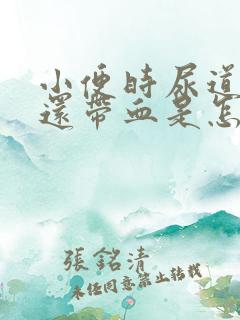 小便時尿道
還帶血是怎
張銘清
未经同意禁止转载